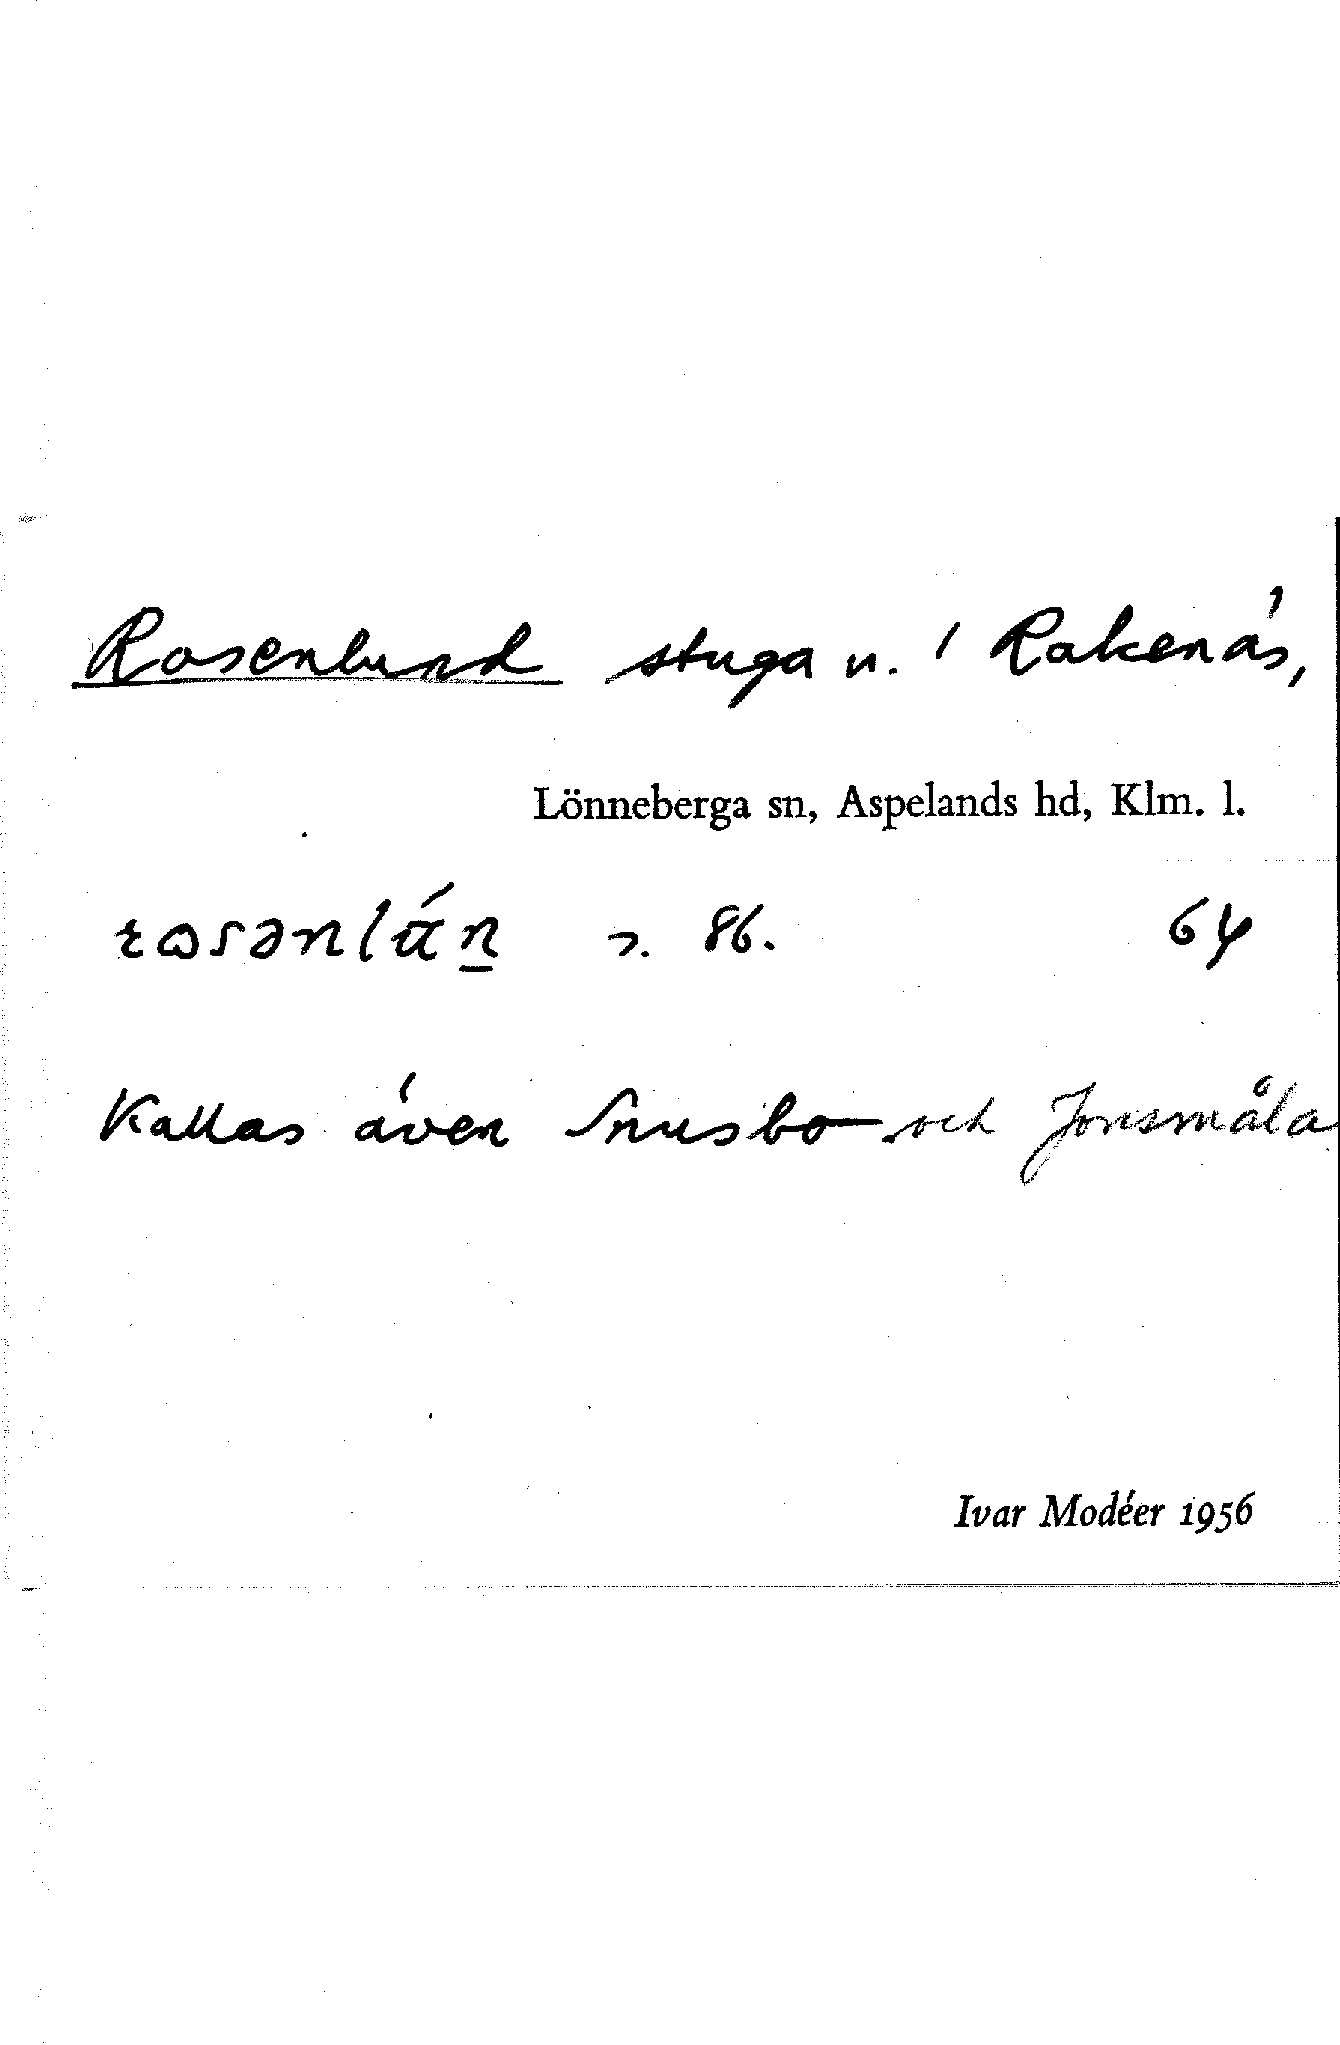 Rosenlund stuga u. 1 Rakenäs,
Lönneberga sn, Aspelands hd, Klm. l.
s. 86. 64
Kallas även Snusbo och Jonsmåla
Ivar Modéer 1956